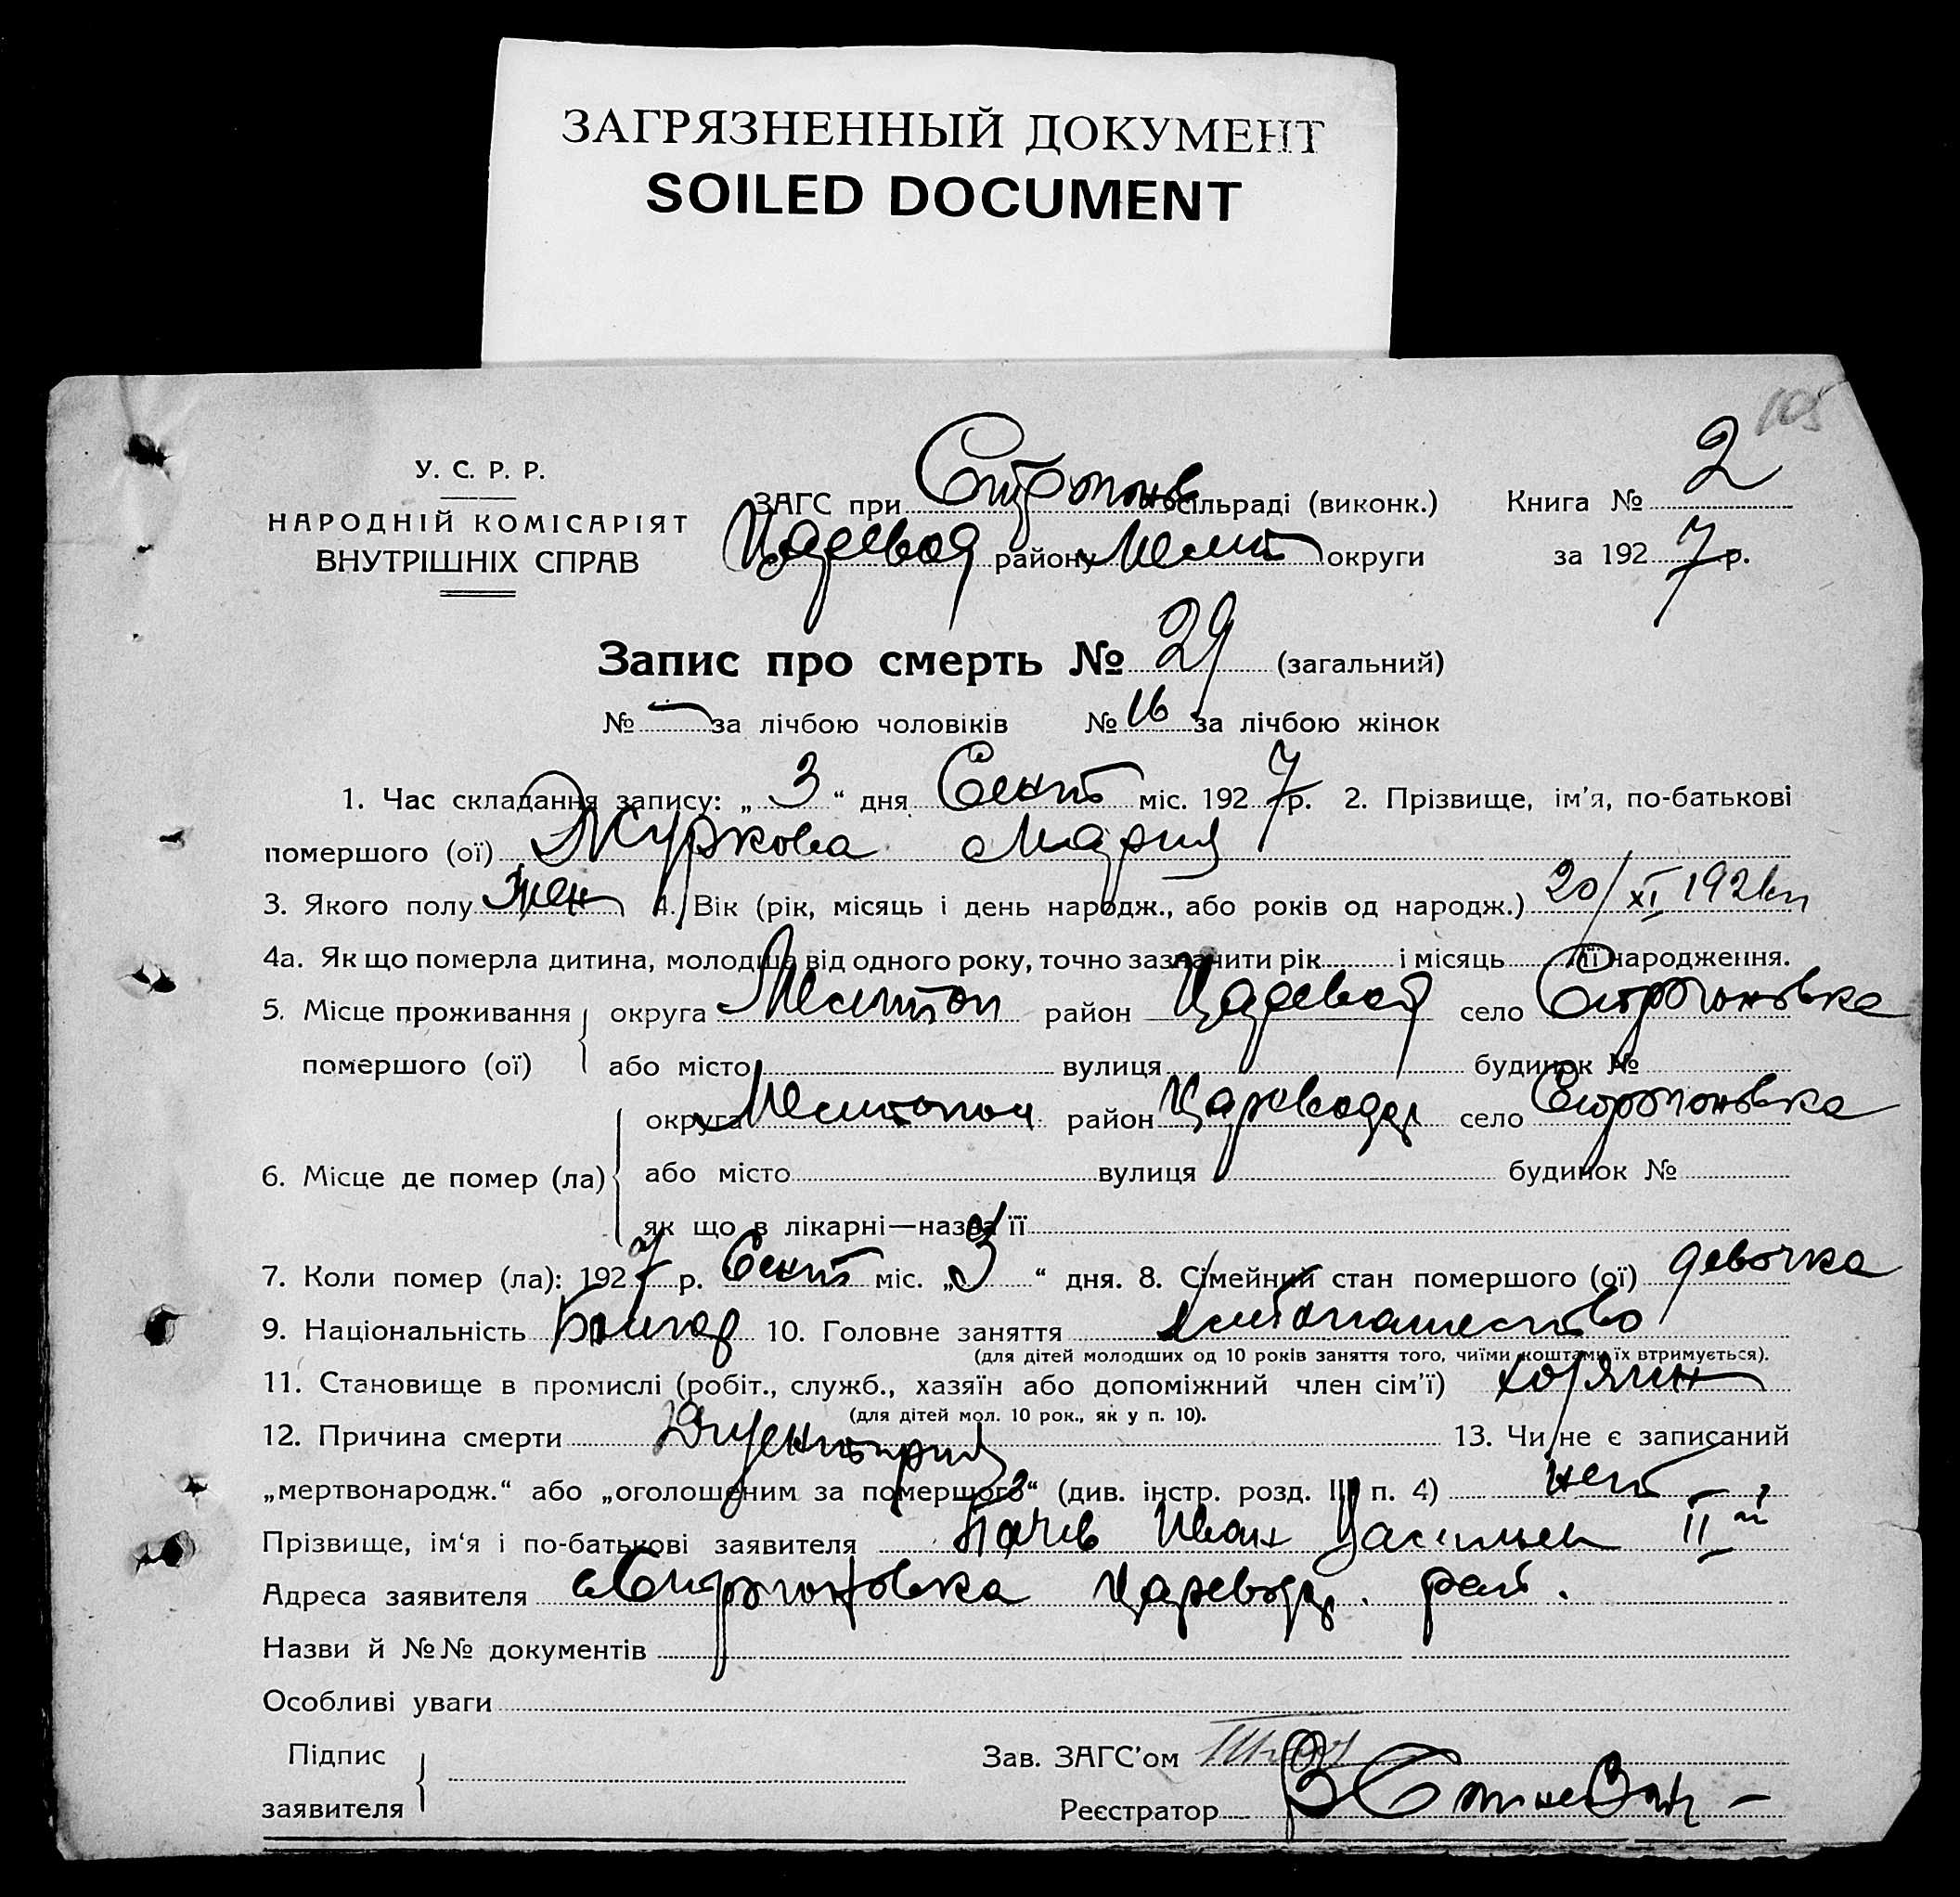 ЗАГРЯЗНЕННЫЙ ДОКУМЕНТ
SOILED DOCUMENT
105
У. С. Р. Р.
НАРОДНІЙ КОМІСАРІЯТ
ВНУТРІШНІХ СПРАВ
ЗАГС при Строгонов сільраді (виконк.)
Царевод району Мелит округи
Книга № 2
за 1927 р.
Запис про смерть № 29 (загальний)
№ — за лічбою чоловіків № 16 за лічбою жінок
1. Час складання запису: „ 3 “ дня Сент міс. 1927 р. 2. Прізвище, ім’я, по-батькові
помершого (ої) Журкова Мария
3. Якого полу жен 4. Вік (рік, місяць і день народж., або років од народж.) 20/XI 1926
4а. Як що померла дитина, молодша від одного року, точно зазначити рік і місяць її народження.
5. Місце проживання помершого (ої) округа Мелитоп район Царевод село Строгоновка
або місто вулиця будинок №
6. Місце де помер (ла) округа Мелитопол район Царевод село Строгоновка
або місто вулиця будинок №
як що в лікарні—назва її
7. Коли помер (ла): 1927 р. Сент міс. „ 3 “ дня. 8. Сімейний стан помершого (ої) девочка
9. Національність Болгар 10. Головне заняття хлебопашество
(для дітей молодших од 10 років заняття того, чиїми коштами їх втримується).
11. Становище в промислі (робіт., служб., хазяїн або допоміжний член сім’ї) хозяин
(для дітей мол. 10 рок., як у п. 10).
12. Причина смерти Дизентерия 13. Чи не є записаний
„мертвонародж.“ або „оголошеним за помершого“ (див. інстр. розд. III п. 4) нет
Прізвище, ім‘я і по-батькові заявителя Иван Василиев II й
Адреса заявителя с Строгоновка Царевод. рай.
Назви й №№ документів
Особливі уваги
Підпис заявителя
Зав. ЗАГС’ом
Реєстратор